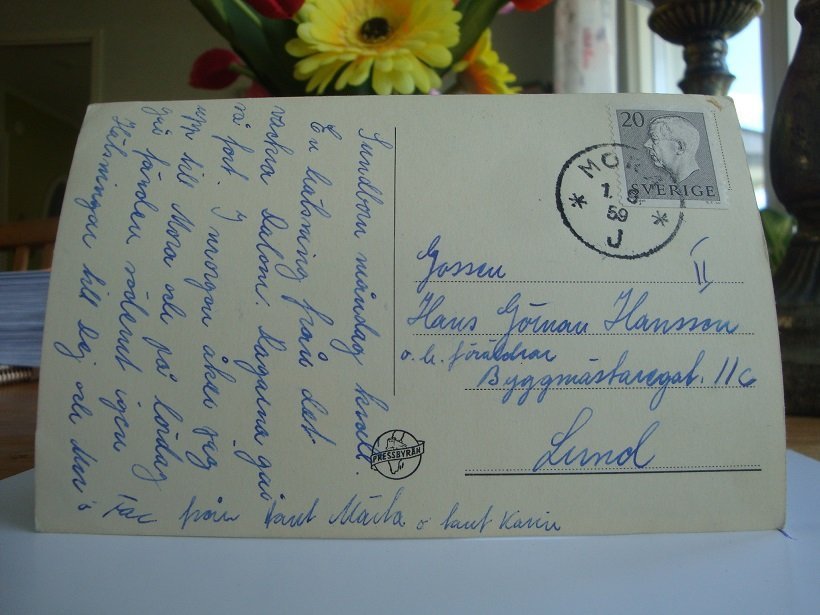 Sundborn måndag kväll.
En hälsning från det
vackra Dalom. Dagarna gå
så fort. I morgon åker jag
upp till Mora och på lördag
går färden söderut igen
Hälsningar till Dej och
från tant Märta o tant Karin
20
SVERIGE
MO
1 8
59
J
Gossen
Hans Göran Hansson
o. h. föräldrar
Byggmästaregat. 11c
Lund
PRESSBYRÅN